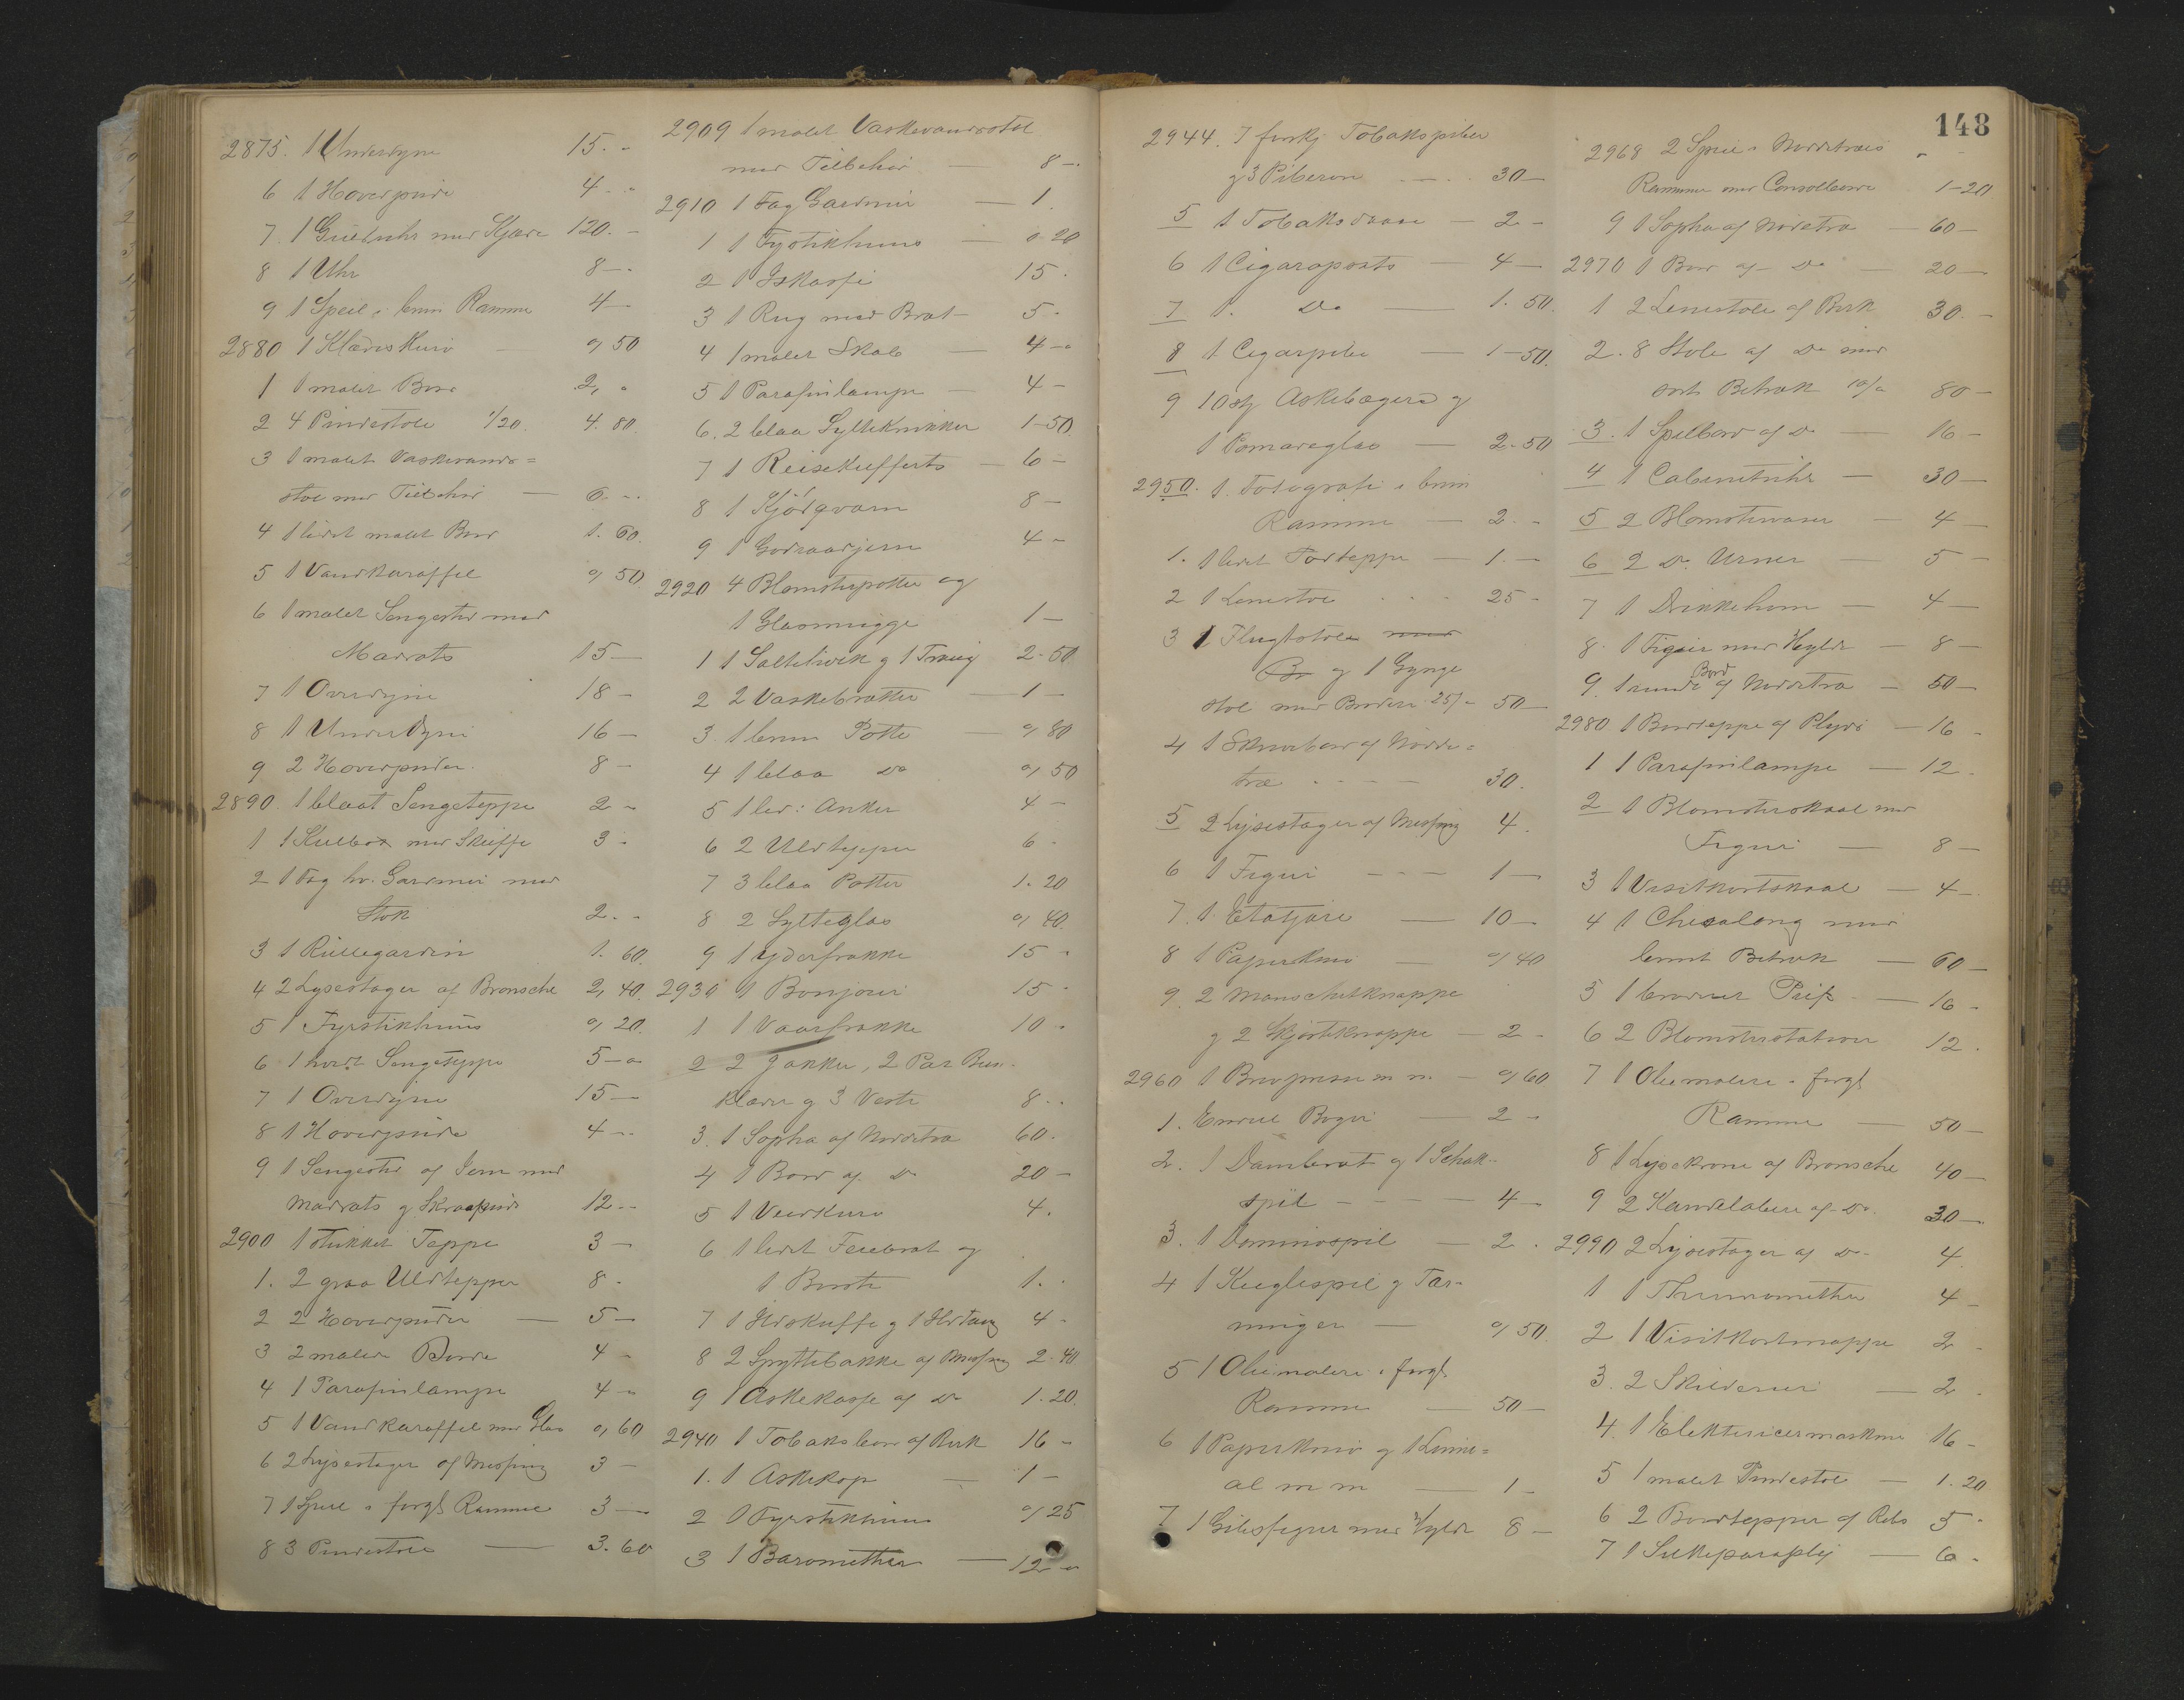 2875. 1 Underdyne 15. -
6 1 Hovedpude 4 - -
7. 1 Gulduhr med Kjæde 120. -
8 1 Uhr 8 - .
9 1 Speil i brun Ramme 4 -
2880 1 Klædeskurv - 0,50
1 1 malet Bord 2, -
2 4 Pindestole 1/20. 4.80.
3 1 malet Vaskevands=
stol med Tilbehør - 6. - .
4 1 lidet malet Bord 1.60.
5 1 Vandkaraffel 0,50
6 1 malet Sengested med
Madrats 15 -
7 1 Overdyne 18 -
8 1 Underdyne 16 -
9 2 Hovedpuder. 8 -
2890. 1 blaat Sengeteppe 2 -
1 1 Kulbox med Skuffe 3 -
2 1 Fag hv. Gardiner med
Stok 2. -
3 1 Rullegardin 1.60.
4 2 Lysestager af Bronsche 2,40.
5 1 Fyrstikhuus 0,20.
6 1 hvidt Sengeteppe 5 - -
7 1 Overdyne 15 -
8 1 Hovedpude 4 - -
9 1 Sengested af Jern med
Madrats og Skraapude 12 - -
2900 1 stukket Teppe 3 -
1. 2 graa Uldtepper 8 -
2 2 Hovedpuder - 5 -
3 2 malede Borde 4 -
4 1 Parafinlampe 4 -
5 1 Vandkaraffel med Glas 0,60
6 2 Lysestager af Messing 3 -
7 1 Speil i forgt Ramme 3 -
8 3 Pindestole - 3.60
2909 1 malet Vaskevandsstol
med Tilbehør - 8 - .
2910 1 Fag Gardiner - 1.
1 1 Fystikhuus - 0.20
2 1 Iskasse 15 .
3 1 Rug med Bret - 5 -
4 1 malet Skab - 4 - -
5 1 Parafinlampe - 4 -
6. 2 blaa Syltekrukker 1-50
7 1 Reisekuffert - 6 -
8 1 Kjødqvarn 8 -
9 1 Goderaadjern 4 -
2920 4 Blomsterpotter og
1 Glasmugge 1 -
1 1 Saltetivek og 1 Traug 2-50
2 2 Vaskebrætter - 1 -
3 1 brun Potte - 0,80
4 1 blaa Do 0,50
5 1 lid: Anker 4 -
6 2 Uldtepper 6 -
7 3 blaa Potter 1.20
8 2 Sylteglas 0,40.
9 1 Yderfrakke 15 -
2930 1 Bonjour 15 -
1 1 Vaarfrakke 10 -
2 2 Jakker, 2 Par Ben-
klæder og 3 Veste 8 - -
3. 1 Sopha af Nøddetræ 60.
4 1 Bord af Do 20 -
5 1 Vedkurv 4.
6 1 lidet Feiebrat og
1 Børste 1. -
7 1 Ildskuffe og 1 Ildtang 4 -
8 2 Spyttebakke af Messing 2-40
9 1 Askekasse af Do 1.20.
2940 1 Tobaksbord af Birk 16 -
1. 1 Askekop - 1 -
2 1 Fyrstikhuus 0,25
3 1 Baromether - 12 - -
2944. 7 forskj Tobakspiber
og 3 Piberør - . 30 -
5 1 Tobaksdaase - 2 -
6 1 Cigaraparts - 4 -
7 1. Do - 1.50.
8 1 Cigarpibe - 1-50.
9 10 st Askebægere og
1 Pomadeglas - 2-50
2950. 1. Fotografi i brun
Ramme - 2. -
1. 1 lidet Fodteppe - 1. -
2 1 Lenestol . . . 25 -
3 1 Flugtstole med
Br og 1 Gynge
stol med Broderi 25/- 50 -
4 1 Skrivebord af Nødde=
træ - - - - 30.
5 2 Lysestager af Messing 4.
6 1 Figur - - - 1 -
7. 1 Etatjere - 10 -
8 1 Papirkniv - 0,40
9. 2 Manschetknappe
og 2 Skjorteknappe - 2 -
2960 1 Brevpresse m m. - 0,60
1. Endel Bøger - 2 -
2. 1 Dambret og 1 Schak-
spil - - - - 4 -
3. 1 Dominospil - 2 .
4 1 Kuglespil og Tær-
ninger - 0,50.
5 1 Oliemaleri i forgt
Ramme - 50 -
6 1 Papirkniv og 1 Linni=
al m m - 1 -
7 1 Gibsfigur med Hylde 8 -
148
2968 2 Speil i Nøddetræes
Ramme med Consolborde 1-20
9 1 Sopha af Nødetræ - 60 -
2970 1 Bord af Do - 20 -
1 2 Lenestole af Birk 30. -
2. 8 Stole af Do med
sort Betræk 10/- 80 -
3. 1 Spilbord af Do - 16 -
4 1 Cabinetuhr - 30 -
5 2 Blomstervaser - 4 -
6 2 Do. Urner - 5 -
7 1 Drikkehorn - 4 -
8. 1 Figur med Hylde - 8 -
9. 1 rundt Bord af Nøddetræ - 50 -
2980 1 Bordteppe af Plyds - 16 -
1 1 Parafinlampe - 12 -
2 1 Blomsterskaal med
Figur - 8 -
3 1 Visitkortskaal - 4 -
4 1 Chesalong med
brunt Betræk - 60 -
5 1 broderet Puf - 16 -
6 2 Blomsterstativer 12 .
7 1 Oliemaleri i forgt
Ramme - 50 -
8 1 Lysekrone af Bronsche 40 -
9 2 Kandelabere af Do. 30 -
2990 2 Lysestager af Do - 4
1 1 Thermomether 4 -
2 1 Visitkortmappe 2 -
3. 2 Skilderier - 2 -
4. 1 Elektricermaskine 16 -
5 1 malet Pindestol - 1.20
6 2 Bordtepper af Rebs 5 -
7 1 Silkeparaply - 6 -